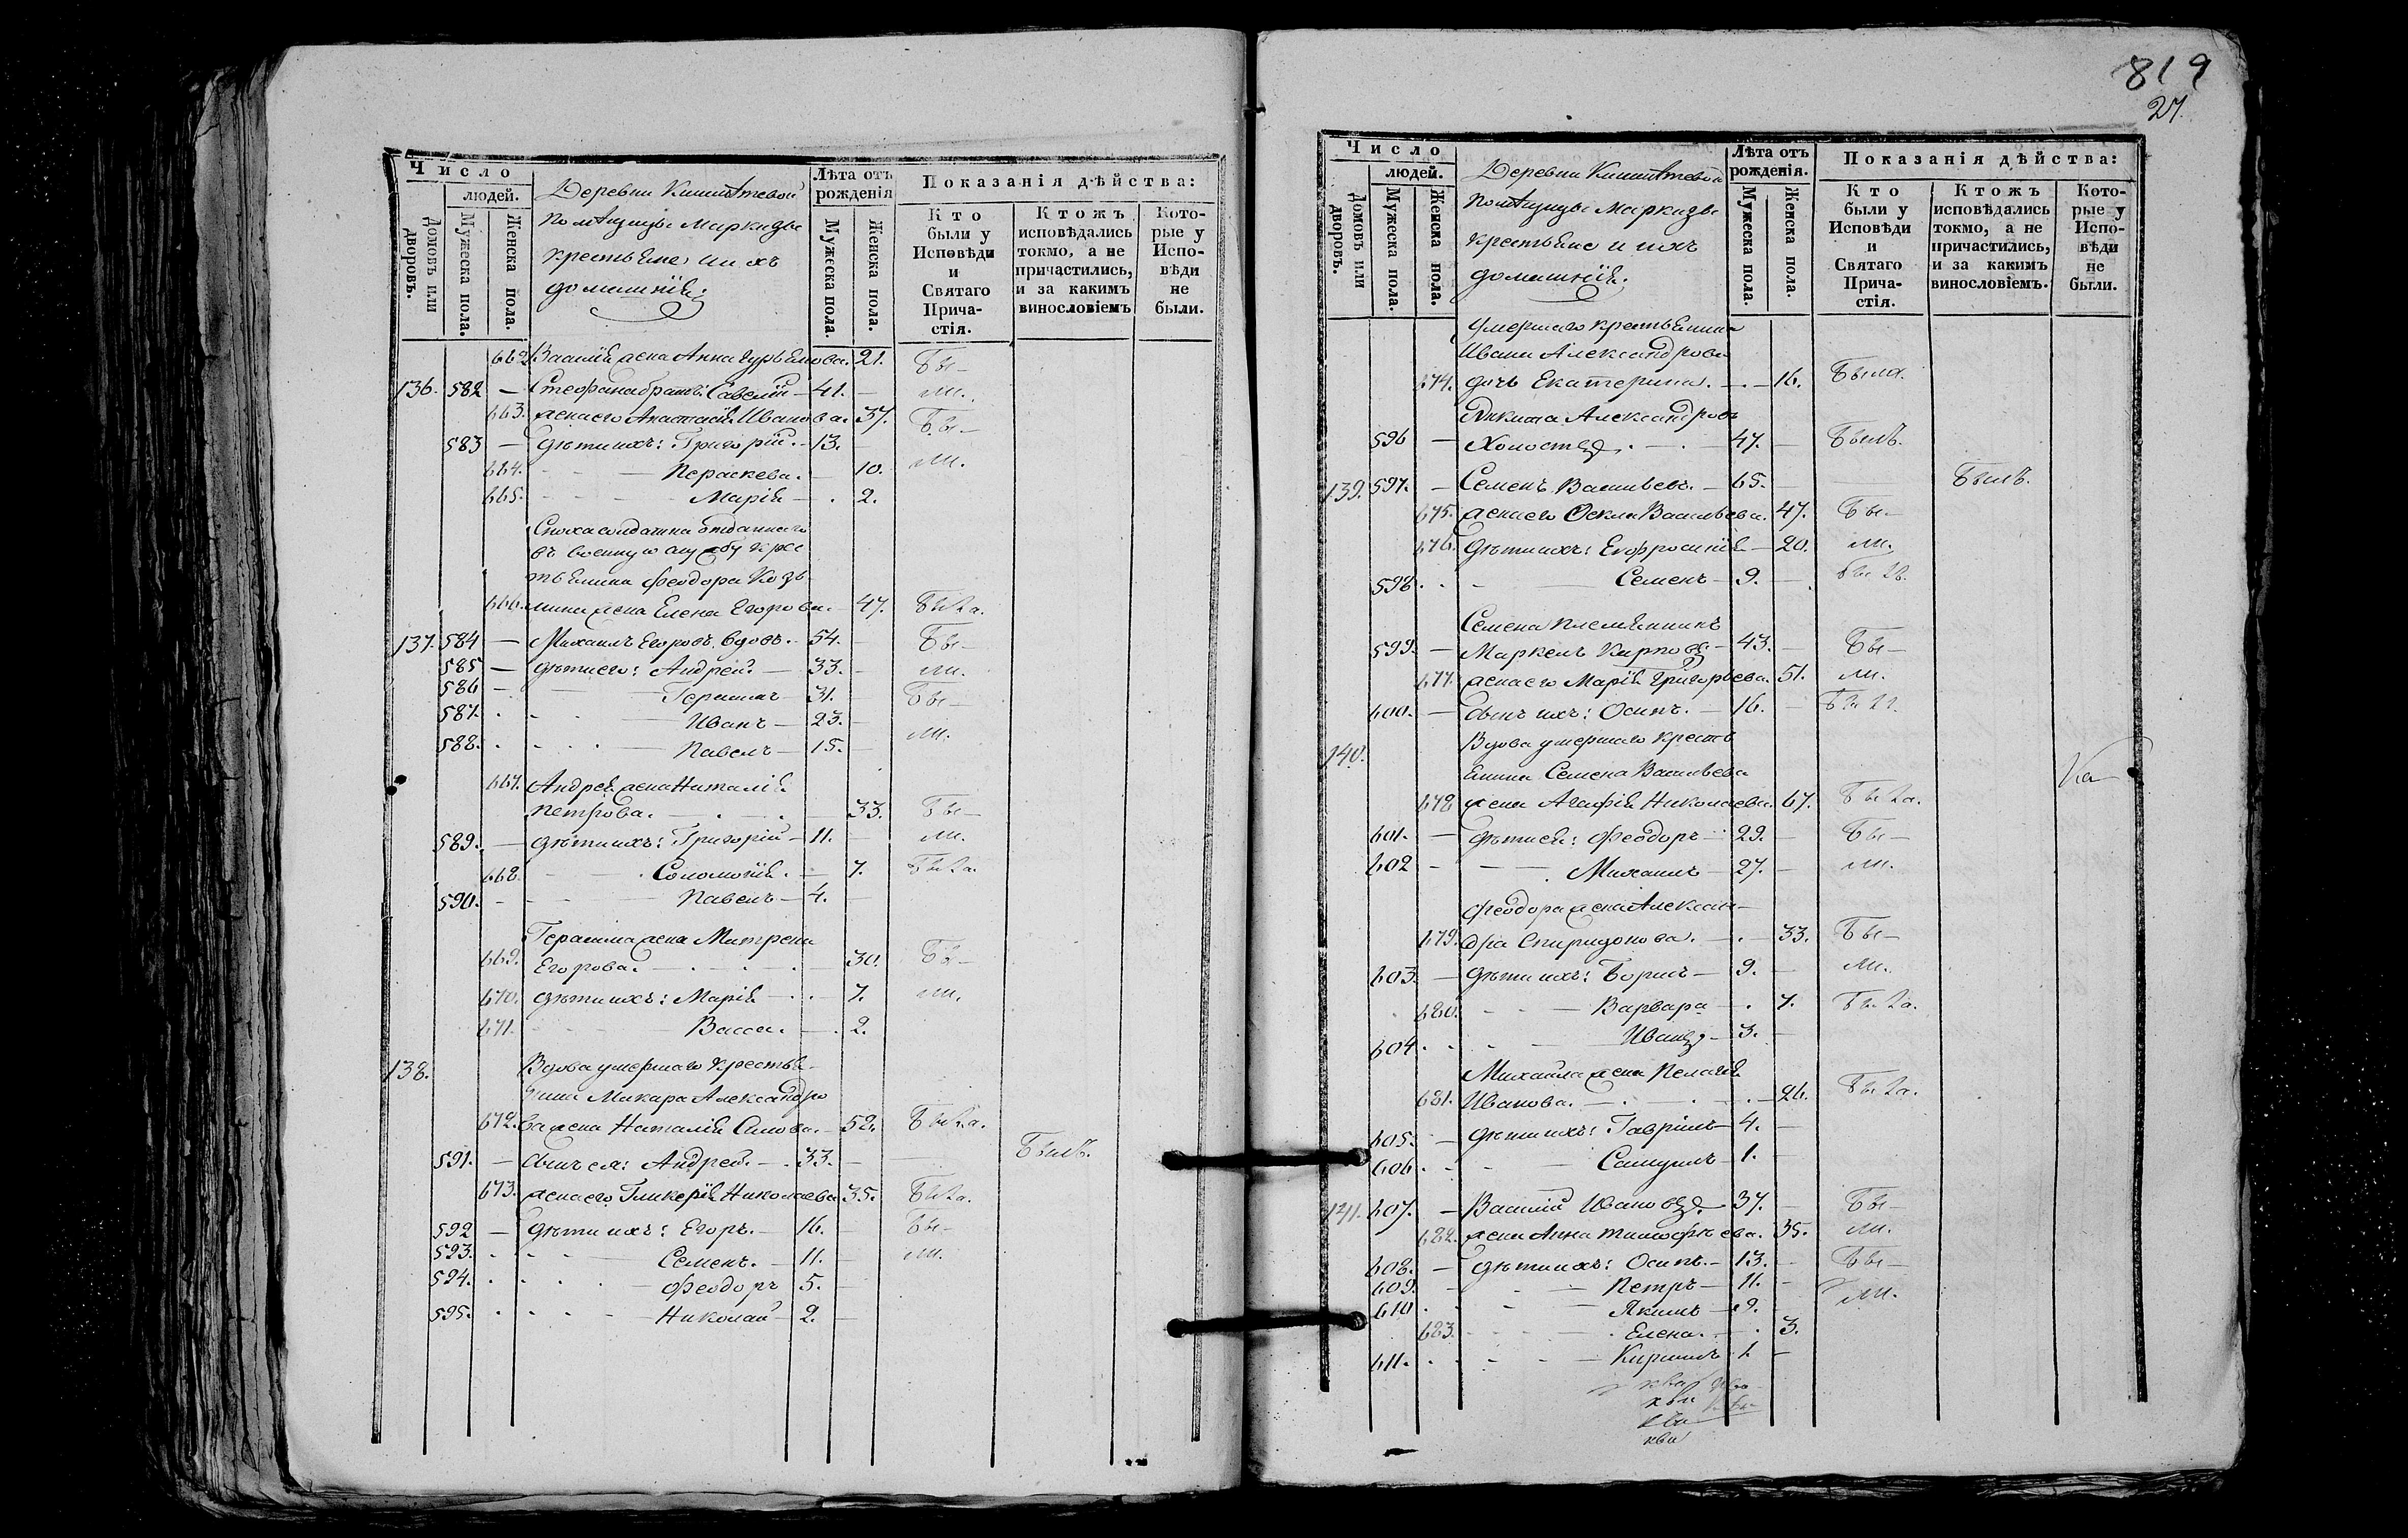 Число
людей.
Домовъ или дворовъ.
Мужеска пола.
Женска пола.
Деревни
помѣщицы Маркизы
крестьяне и ихъ
домашніе:
Лѣта отъ рожденія
Мужеска пола.
Женска пола.
Показанія дѣйства:
Кто были у Исповѣди и Святаго Прича-стія.
Ктожъ исповѣдались токмо, а не причастились, и за какимъ винословіемъ
Кото-рые у Испо-вѣди не были.
662 Василія жена Анна Гурьянова. 21. Бы-
136. 582 — Стефана братъ Савелій — 41. — ли.
663. жена его Анастасія Иванова. 37. Бы-
583 — дѣти ихъ: Григорій. — 13.
664. Параскева. — 10. ли.
665. Марія — . 2.
Сноха солдатка отданнаго
въ военную службу крес
тьянина Феодора Козь
666. мина жена Елена Егорова. — 47. Была.
137. 584 — Михаилъ Егоровъ вдовъ. — 54. — Бы-
585 — дѣти его: Андрей. — 33. — ли.
586 — Герасимъ — 31. — Бы-
587. Иванъ — 23. —
588. Павелъ — 15. — ли.
667. Андрея жена Наталія
Петрова. — 33. Бы-
589. — дѣти ихъ: Григорій — 11. — ли.
668. Соломонія. — 7. Была.
590. Павелъ — 4. —
Герасима жена Матрена
669. Егорова. — 30. Бы-
670. дѣти ихъ: Марія — 7. ли.
671. Васса. — 2.
138. Вдова умершаго крестья-
нина Макара Александро
672. ва жена Наталія Силова. — 52. Была.
591. — сынъ ея: Андрей. — 33. — Былъ.
673. жена его Гликерія Николаева 35. Была.
592 — дѣти ихъ: Егоръ. — 16. — Бы-
593. Семенъ. — 11. — ли.
594. Феодоръ 5. —
595. Николай — 2. —
819
27.
Число
людей.
Домовъ или дворовъ.
Мужеска пола.
Женска пола.
Деревни
помѣщицы Маркизы
крестьяне и ихъ
домашніе.
Лѣта отъ рожденія.
Мужеска пола.
Женска пола.
Показанія дѣйства:
Кто были у Исповѣди и Святаго Прича-стія.
Ктожъ исповѣдались токмо, а не причастились, и за какимъ винословіемъ.
Кото-рые у Испо-вѣди не были.
умершаго крестьянина
Ивана Александрова
674. дочь Екатерина. — 16. Была.
Никита Александровъ
596 — холостъ. — 47. — Былъ.
139. 597. — Семенъ Васильевъ. — 65. — Былъ.
675. жена его Фекла Васильева. 47. Бы-
676. дѣти ихъ: Евфросинія — 20. ли.
598. Семенъ — 9. — Былъ.
Семена племянникъ
599. — Маркелъ Карповъ — 43. — Бы-
677. жена его Марія Григорьева. 51. ли.
600. — сынъ ихъ: Осипъ. — 16. — Былъ.
140. Вдова умершаго кресть
янина Семена Васильева
678 жена Агафія Николаева. 67. Была.
601. — дѣти ея: Феодоръ — 29. — Бы-
602 — Михаилъ — 27. — ли.
Феодора жена Алексан-
679. дра Спиридонова. — 33. Бы-
603. — дѣти ихъ: Борисъ — 9. — ли.
680. Варвара — 7. Была.
604. Иванъ — 3. —
Михаила жена Пелагія
681. Иванова. — 26. Была.
605. — дѣти ихъ: Гавріилъ — 4. —
606. Самуилъ — 1. —
141. 607. — Василій Ивановъ — 37. — Бы-
682. жена Анна Тимофѣева. 35. ли.
608. — дѣти ихъ: Осипъ. — 13. — Бы-
609. Петръ — 11. —
610 Якимъ — 9. — ли.
683. Елена. — 3.
611. Кириллъ 1. —